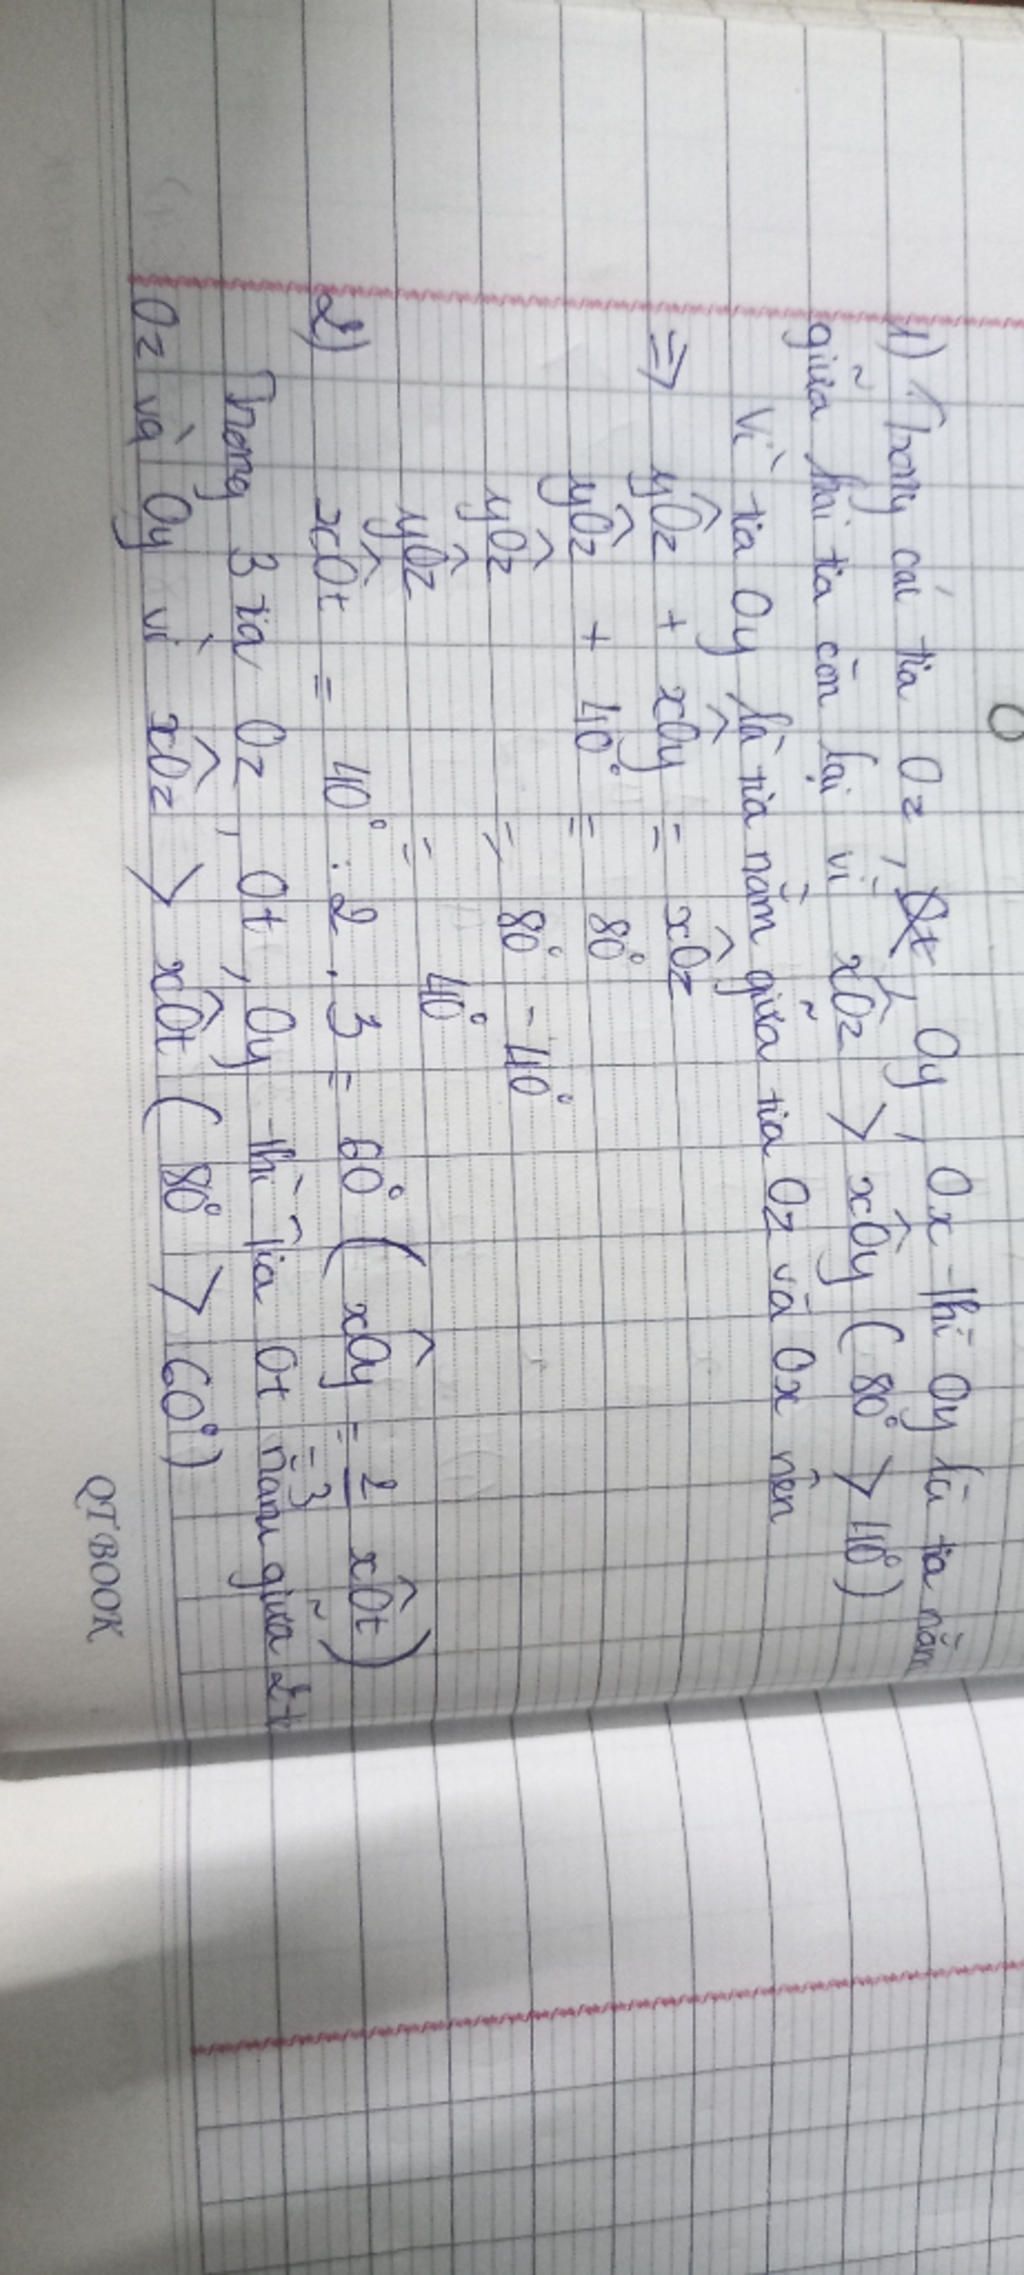 1) Trong các tia Oz, Oy, Ox thì Oy là tia nằm
giữa hai tia còn lại vì xÔz > xÔy ( 80° > 40° )
Vì tia Oy là tia nằm giữa tia Oz và Ox nên
=> yÔz + xÔy = xÔz
yÔz + 40° = 80°
yÔz = 80° - 40°
yÔz = 40°
2) xÔt = 40° : 2 . 3 = 60° ( xÔy = 2/3 xÔt )
Trong 3 tia Oz, Ot, Oy thì tia Ot nằm giữa 2 t
Oz và Oy vì xÔz > xÔt ( 80° > 60° )
QT BOOK